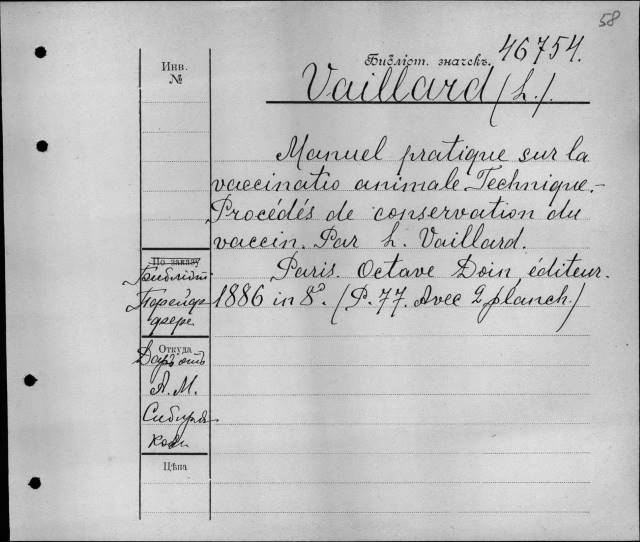 58
Инв.
№
Библіот. значекъ. 46754.
Vaillard (L.).
Manuel pratique sur la
vaccinatio animale. Technique.-
Procédés de conservation du
vaccin. Par L. Vaillard.
По заказу
Paris. Octave Doin, éditeur.
1886 in 8°. (P. 77. Avec 2 planch.)
Откуда
Даръ отъ
А. М.
Сибиря-
кова
Цѣна